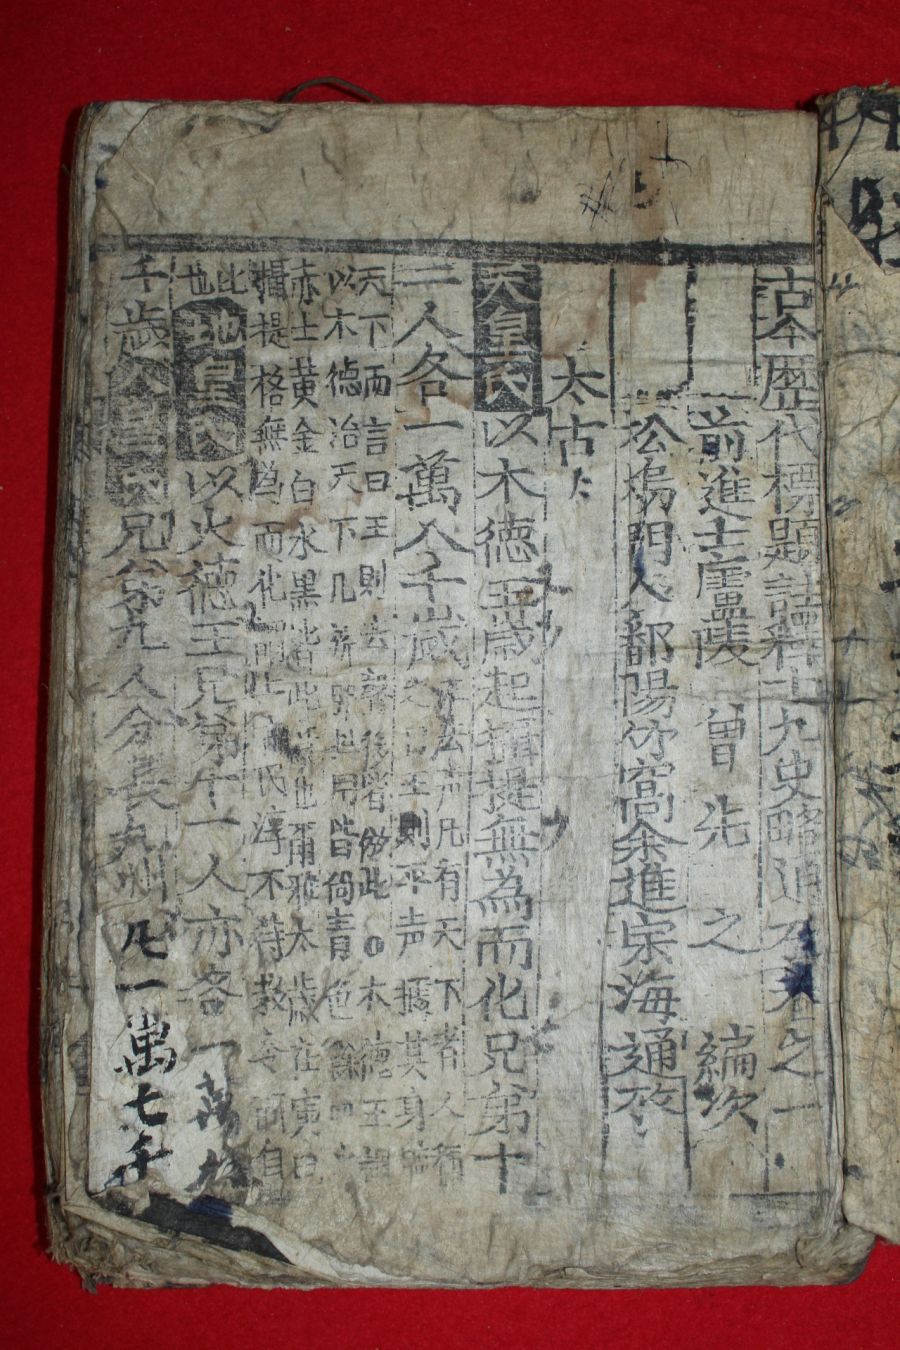 古今歷代標題註釋十九史略通攷卷之一
前進士廬陵 曾先之 編次
松塢門人鄱陽竹窩余進宗海通攷
太古
天皇氏以木德王歲起攝提無為而化兄弟十
二人各一萬八千歲
凡有天下者人稱
之曰王則平声據其身臨
天下而言曰王則去聲後者倣此○木德王謂
以木德治天下 皆尙青色
赤土黃金白水黑皆此 也爾雅太歲在寅曰
攝提格無為而化 民淳不待敎令 自
化也
地皇氏以火德王兄弟十一人亦各一萬八
千歲人皇氏兄弟九人分長九州凡一萬七千